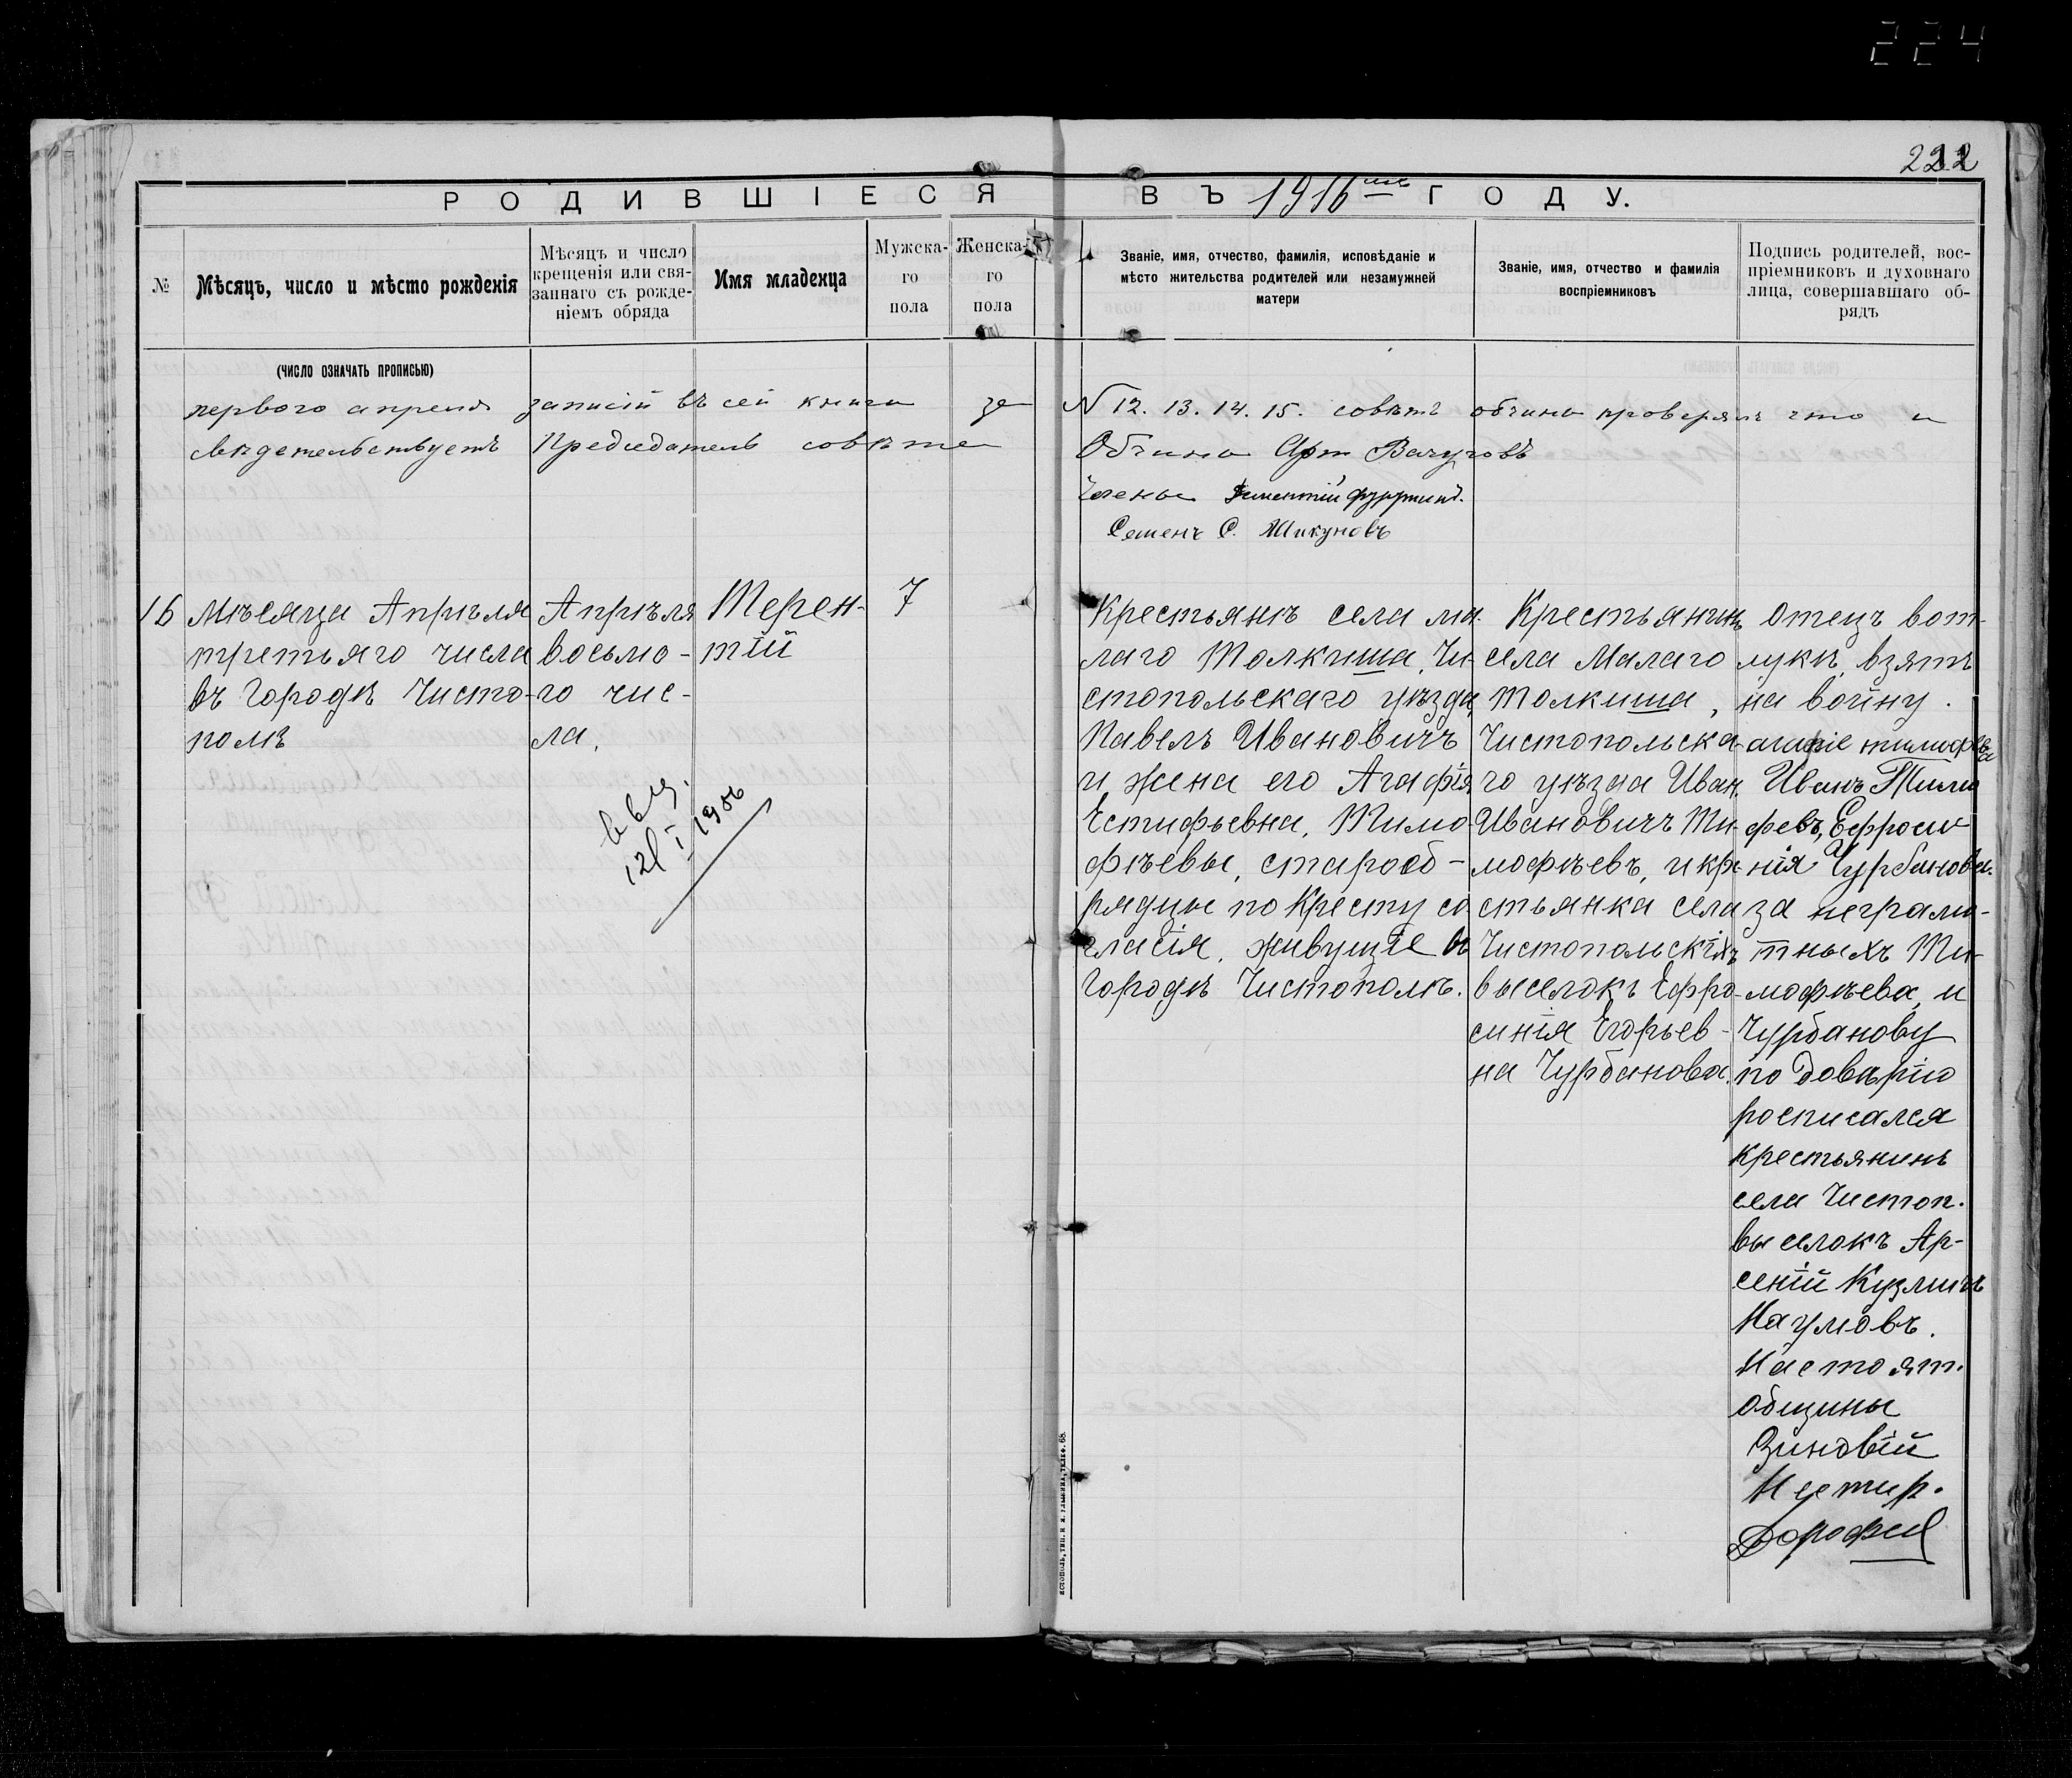 224
222
РОДИВШІЕСЯ ВЪ 1916мъ ГОДУ.
№
Мѣсяцъ, число и мѣсто рожденія
Мѣсяцъ и число
крещенія или свя-
заннаго съ рожде-
ніемъ обряда
Имя младенца
Мужска-
го
пола
Женска-
го
пола
Званіе, имя, отчество, фамилія, исповѣданіе и
мѣсто жительства родителей или незамужней
матери
Званіе, имя, отчество и фамилія
воспріемниковъ
Подпись родителей, вос-
пріемниковъ и духовнаго
лица, совершавшаго об-
рядъ
(ЧИСЛО ОЗНАЧАТЬ ПРОПИСЬЮ)
первого апреля записій въ сей книги за N 12. 13. 14. 15. совѣтъ общины проверялъ что и
свѣдетельствуетъ Председатель совѣта Общины Арт Вачуговъ
Члены
Семенъ С. Шикуновъ
16
Мѣсяца Апрѣля
третьяго числа
въ Городѣ Чисто-
полѣ
Апрѣля
восьмо-
го чис-
ла.
Терен-
тій
7
выд.
12/I 1956
Крестьянѣ села ма-
лаго Толкиша, Чи-
стопольскаго уѣзда,
Павелъ Ивановичъ
и жена его Агафія
Естифьевна, Тимо-
фѣевы, старооб-
рядцы по Кресту со
гласія, живущіе въ
Городѣ Чистополѣ.
Крестьянинъ
села Малаго
Толкиша,
Чистопольска-
го уѣзда Иван
Ивановичъ Ти-
мофѣевъ, и кре-
стьянка села
Чистопольскіхъ
выселокъ Ефро-
синія Егорьев-
на Чурбанова.
Отецъ вот-
лукѣ, взятъ
на войну.
Иванъ Тимо
феевъ, Ефроси
нія Чурбанова.
за неграмо-
тныхъ Ти-
мофѣева, и
Чурбанову
по довѣрію
росписался
крестьянинъ
села Чистоп.
выселокъ Ар-
сеній Кузмичъ
Наумовъ.
Настоят.
общины
Зиновій
Нестир.
Дорофеев